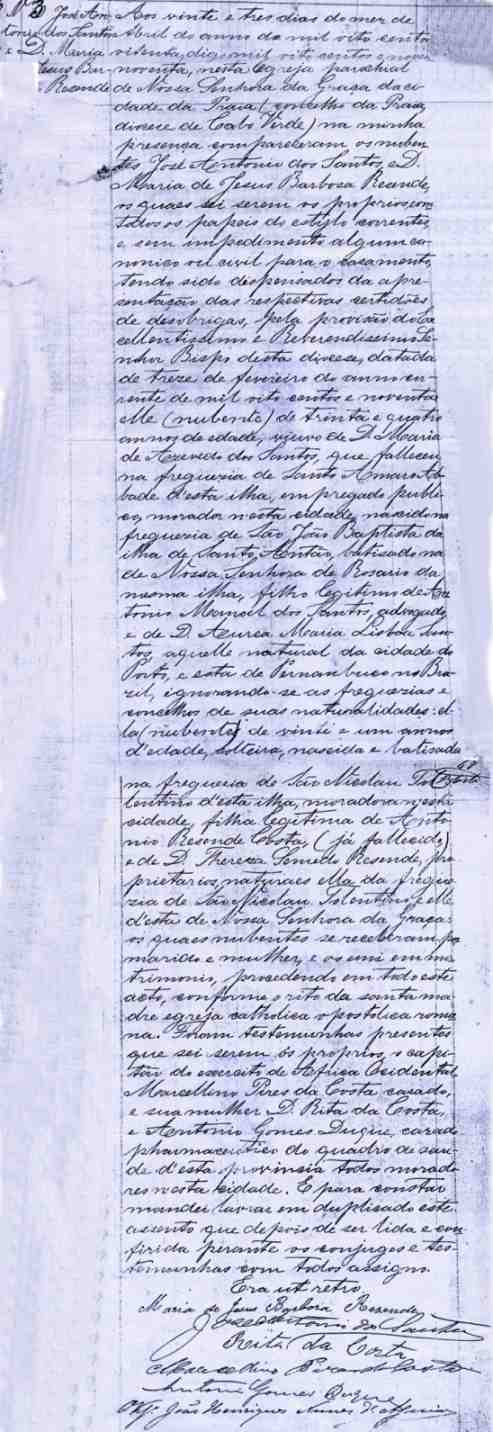 Nº 3
José An-
tonio dos Santos
e D. Maria
Jesus Bar-
Resende
Aos vinte e tres dias do mez de
Abril do anno de mil oito centos
oitenta, digo mil oito centos e noven
noventa, nesta Egreja parochial
de Nossa Senhora da Graça da ci-
dade da Praia (concelho da Praia,
diocese de Cabo Verde) na minha
presença compareceram os nuben-
tes José Antonio dos Santos, e D.
Maria de Jesus Barbosa Resende,
os quaes sei serem os proprios, com
todos os papeis do estylo correntes,
e sem impedimento algum ca-
nonico ou civil para o casamento,
tendo sido dispensados da apre-
sentação das respectivas certidões
de desobrigas, pela provisão do Ex
cellentissimo e Reverendissimo Se-
nhor Bispo desta diocese, datada
de treze de fevereiro do anno cor-
rente de mil oito centos e noventa
elle (nubente) de trinta e quatro
annos de edade, viuvo de D. Maria
de Azevedo dos Santos, que falleceu
na freguezia de Santo Amaro Ab-
bade d'esta ilha, empregado publi-
co, morador nesta cidade, nascido na
freguezia de São João Baptista da
ilha de Santo Antão, batisado na
de Nossa Senhora do Rosario da
mesma ilha, filho legitimo de An
tonio Manoel dos Santos, advogado
e de D. Aurea Maria Lisboa San-
tos, aquelle natural da cidade do
Porto, e esta de Pernambuco no Bra-
zil, ignorando-se as freguezias e
concelhos de suas naturalidades: el-
la (nubente) de vinte e um annos
d'edade, solteira, nascida e batisada
na freguezia de São Nicolau To-
lentino d'esta ilha, moradora n'esta
cidade, filha legitima de Anto-
nio Resende Costa, (já fallecido)
e de D. Thereza Semedo Resende, pro-
prietarios, naturaes ella da fregue-
zia de São Nicolau Tolentino, e elle
d'esta de Nossa Senhora da Graça:
os quaes nubentes se receberam por
marido e mulher, e os uni em ma
trimonio, procedendo em todo este
acto, conforme o rito da santa ma-
dre egreja catholica apostolica roma
na. Foram testemunhas presentes
que sei serem os proprios, o capi-
tão do exercito de Africa Occidental
Marcellino Pires da Costa casado,
e sua mulher D. Rita da Costa,
e Antonio Gomes Duque, casado
pharmaceutico do quadro de sau-
de d'esta provincia todos morado
res nesta cidade. E para constar
mandei lavrar em duplicado este
assento que depois de ser lido e con
ferido perante os conjuges e tes-
temunhas com todos assigno.
Era ut retro.
Maria de Jesus Barbosa Resende
José Antonio dos Santos
Rita da Costa
Marcellino Pires da Costa
Antonio Gomes Duque
João Henriques